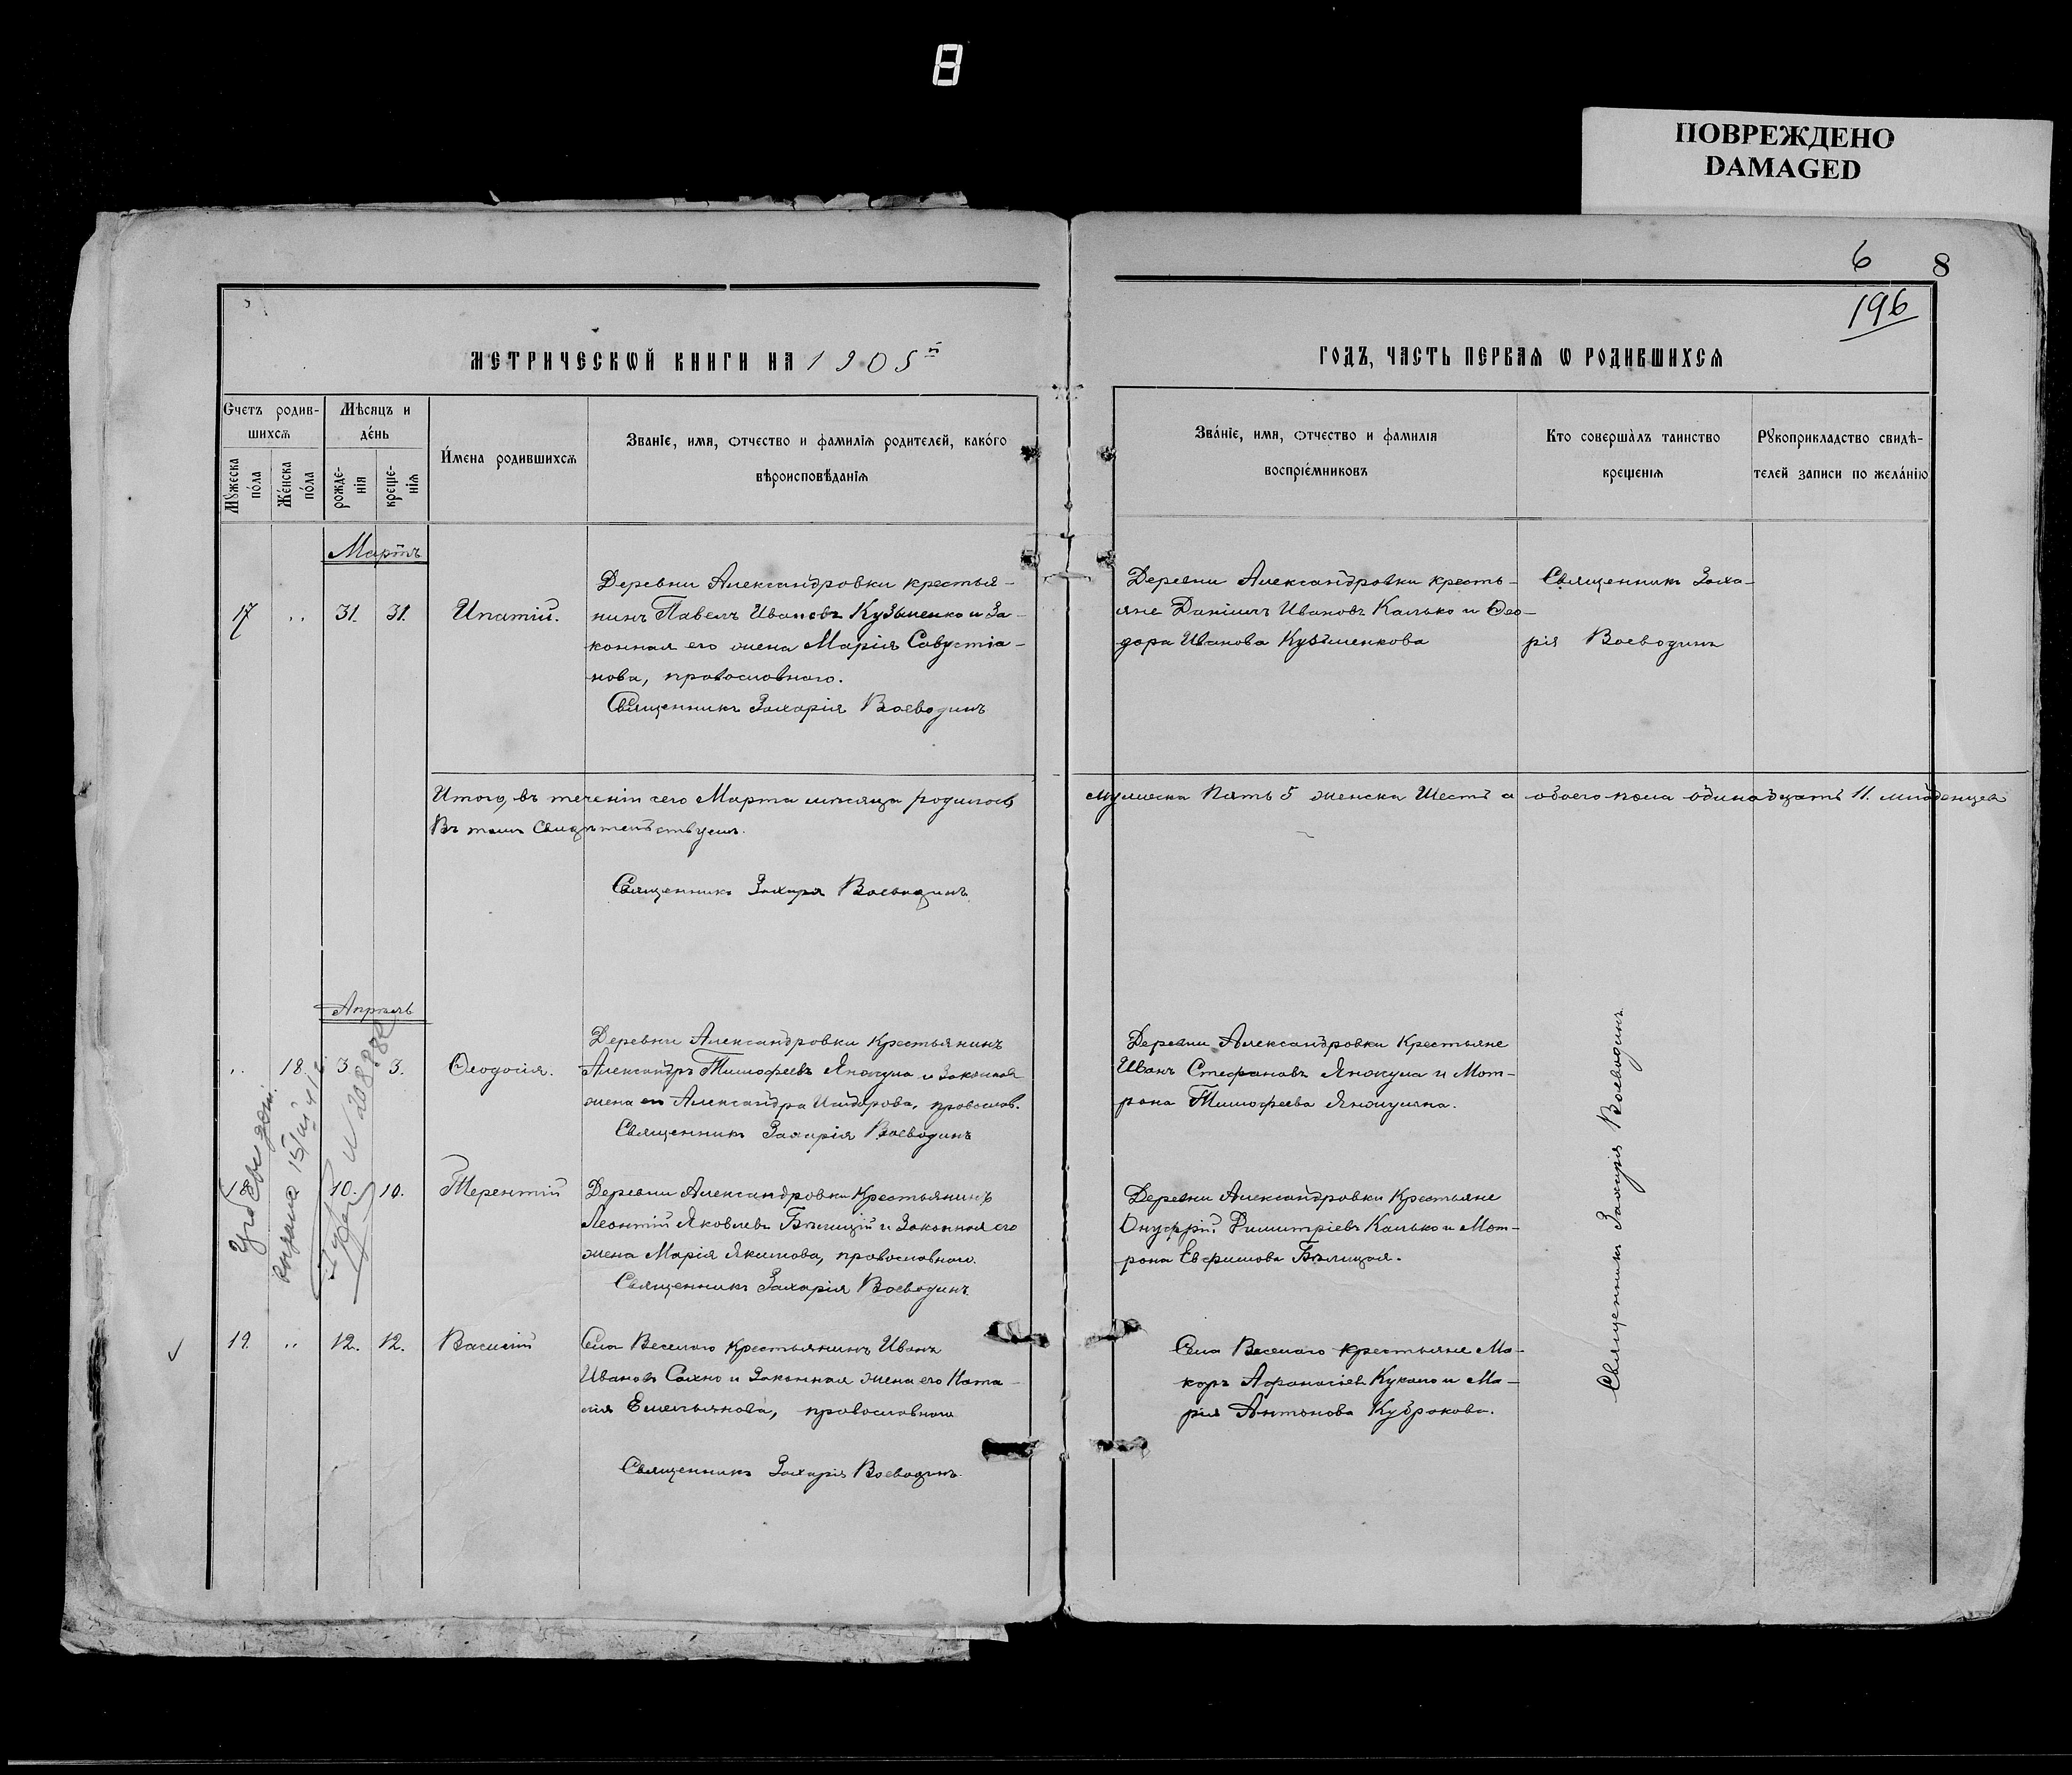 8
ПОВРЕЖДЕНО
DAMAGED
6 8
196
МЕТРИЧЕСКѠЙ КНИГИ НА 1905й
ГОДЪ, ЧАСТЬ ПЕРВАѦ Ѡ РОДИВШИХСѦ
Счетъ родив-
шихсѧ
Мѣсяцъ и
де́нь
Мꙋжеска
по́ла
Же́нска
по́ла
рожде-
нія
креще-
нія
И́мена родившихсѧ
Званіе, имя, отчество и фамилія родителей, како́го
вѣроисповѣданія
Зва́ніе, имя, отчество и фамилія
воспріе́мниковъ
Кто соверша̀лъ таинство
крещенія
Рꙋкоприкладство свидѣ-
телей записи по жела́нію
Мартъ
17 „ 31. 31. Ипатій.
Деревни Александровки крестья-
нинъ Павелъ Ивановъ Кузьменко и за-
конная его жена Марія Савустіа-
нова, православнаго.
Священникъ Захарія Воеводинъ
Деревни Александровки кресть-
яне Даніилъ Ивановъ Калько и Ѳео-
дора Иванова Кузьменкова
Священникъ Заха-
рія Воеводинъ
Итого, въ теченіи сего Марта мѣсяца родилось мужеска Пять 5 женска Шесть а обоего пола одинадцать 11. младенцев
Въ томъ свидѣтельствуемъ.
Священникъ Захарія Воеводинъ
Апрѣль
„ 18. 3. 3. Ѳеодосія.
Деревни Александровки Крестьянинъ
Александръ Тимофеевъ Янжула и законная
жена его Александра Исидорова, православ.
Священникъ Захарія Воеводинъ
Деревни Александровки Крестьяне
Иванъ Стефановъ Янжула и Мот-
рона Тимофеева Янжулина.
18 10. 10. Терентій
Деревни Александровки Крестьянинъ
Леонтій Яковлевъ Бѣлицкій и Законная его
жена Марія Якимова, православнаго.
Священникъ Захарія Воеводинъ
Деревни Александровки Крестьяне
Онуфрій Димитріевъ Калько и Мот-
рона Евфимова Бѣлицкая.
19. „ 12. 12. Василій
Села Веселаго крестьянинъ Иванъ
Ивановъ Сахно и Законная жена его Ната-
лія Емельянова, православнаго
Священникъ Захарія Воеводинъ
Села Веселаго крестьяне Ма-
каръ Афанасіевъ Кукало и Ма-
рія Антонова Кудрокова.
Священникъ Захарія Воеводинъ